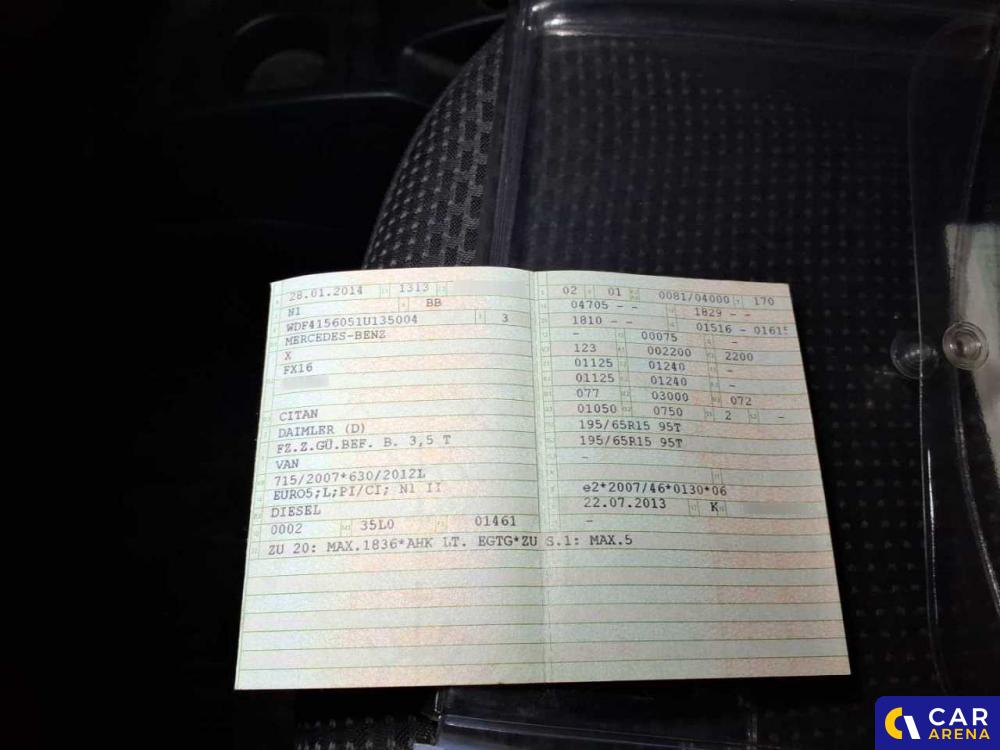 28.01.2014 1313
N1 BB
WDF4156051U135004 3
MERCEDES-BENZ
X
FX16
CITAN
DAIMLER (D)
FZ.Z.GÜ.BEF. B. 3,5 T
VAN
715/2007*630/2012L
EURO5;L;PI/CI; N1 II
DIESEL
0002 35L0 01461
ZU 20: MAX.1836*AHK LT. EGTG*ZU S.1: MAX.5
02 01 0081/04000 170
04705 - - 1829 - -
1810 - - 01516 - 01615
- 00075 -
123 002200 2200
01125 01240 -
01125 01240 -
077 03000 072
01050 0750 2 -
195/65R15 95T
195/65R15 95T
-
e2*2007/46*0130*06
22.07.2013 K
-
CAR
ARENA